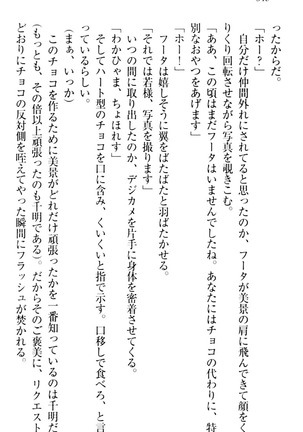 ったからだ。
「ホー？」
自分だけ仲間外れにされてると思ったのか、フータが美景の肩に飛んできて顔をく
りくり回転させながら写真を覗きこむ。
「ああ、この頃はまだフータはいませんでしたね。あなたにはチョコの代わりに、特
別なおやつをあげます」
「ホー！」
フータは嬉しそうに翼をばたばたと羽ばたかせる。
「それでは若様、写真を撮ります」
いつの間に取り出したのか、デジカメを片手に身体を密着させてくる。
「わかひゃま、ちょほれす」
そしてハート型のチョコを口に含み、くいくいと指で示す。口移しで食べろ、と言
っているらしい。
（まぁ、いっか）
このチョコを作るために美景がどれだけ頑張ったかを一番知っているのは千明だ
（もっとも、その倍以上頑張ったのも千明である）。だからそのご褒美に、リクエスト
どおりにチョコの反対側を咥えてやった瞬間にフラッシュが焚かれる。